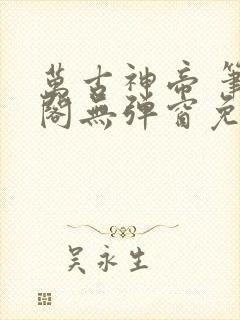 萬古神帝 筆
閣無彈窗免
吳永生